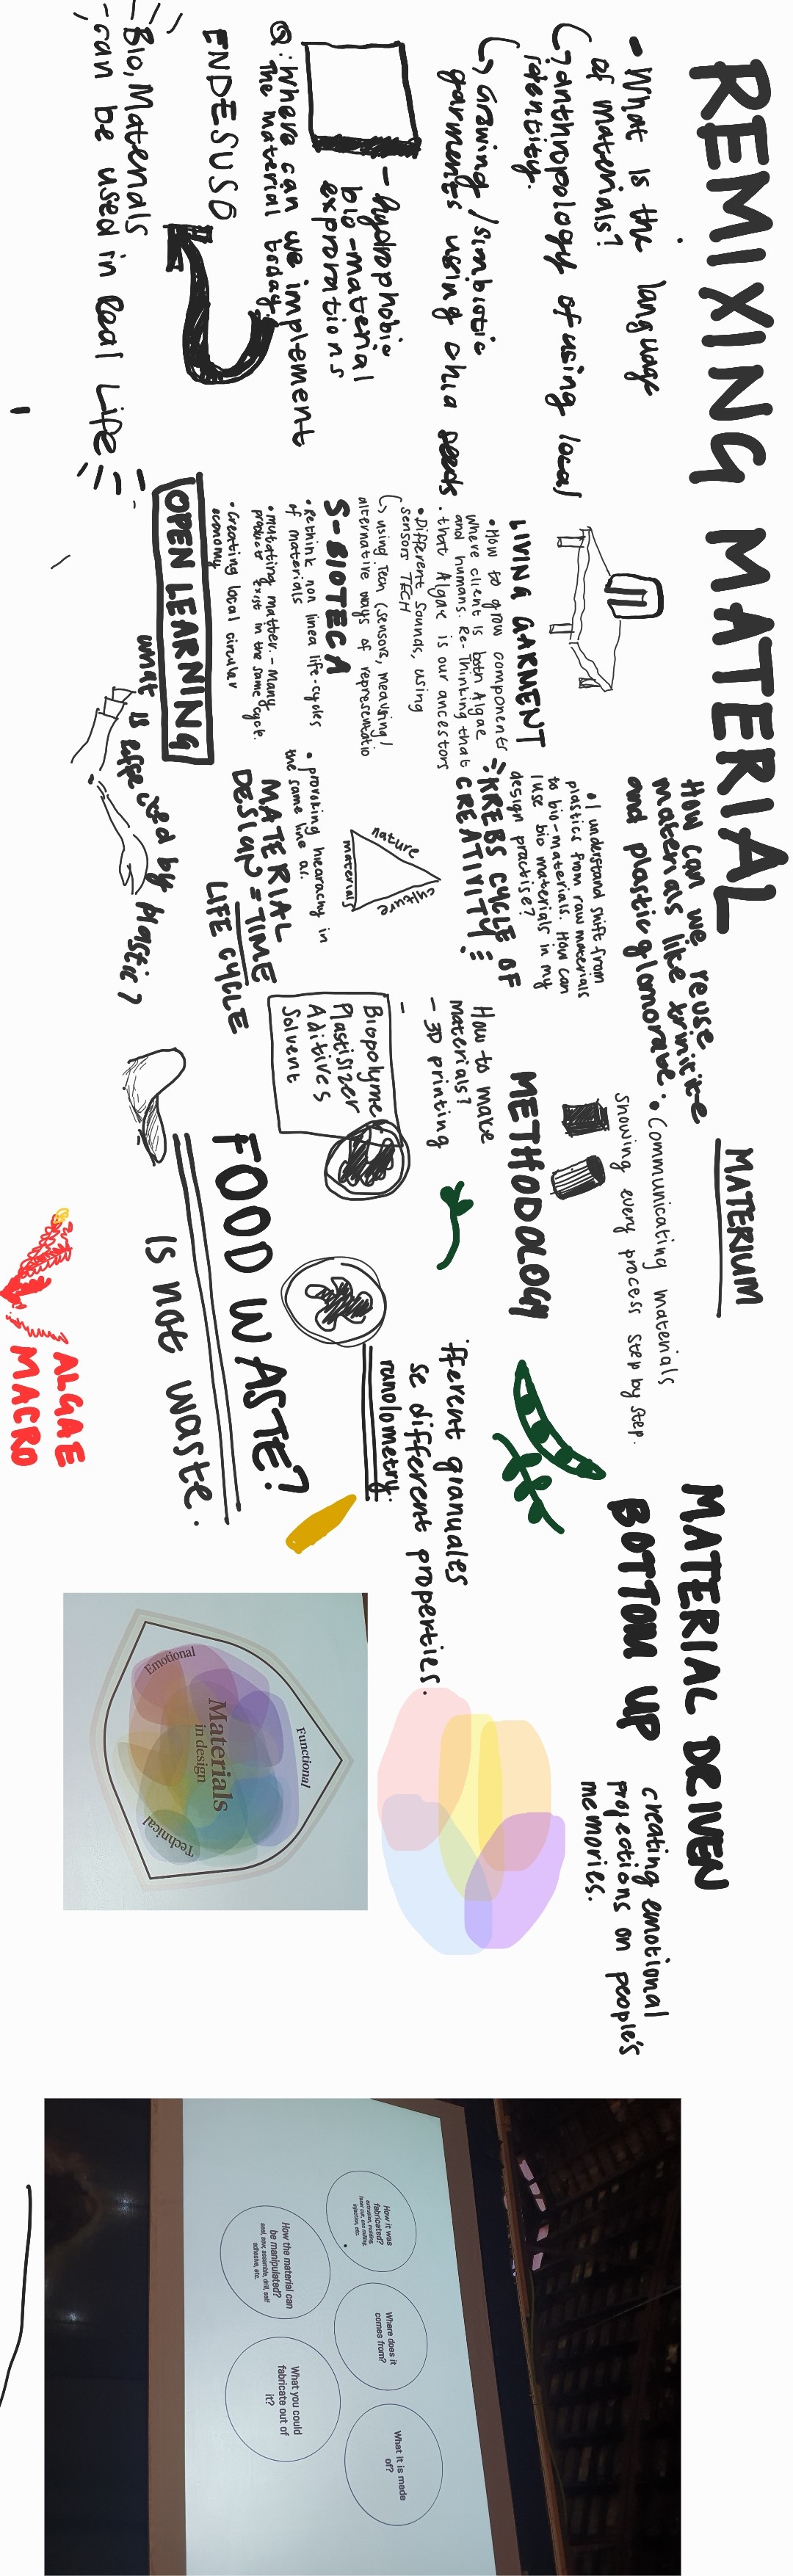 REMIXING MATERIAL
- What is the language
of materials?
anthropology of using local
identity.
Growing /simbiotic
garments using chia seeds
- hydrophobic
bio-material
exprorations
Q: Where can we implement
The material today
ENDESUSO
Bio, Materials
can be used in Real Life
LIVING GARMENT
• How to grow components
where client is both Algae
and humans. Re-Thinking that
• that Algae is our ancestors
• Different Sounds, using
sensors TECH
using Tech (sensors, measuring)
alternative ways of representatio
S-BIOTECA
• Rethink non linea life-cycles
of materials
• mutating matter. - Many
products exist in the same cycle.
• Creating local circular
economy
OPEN LEARNING
what is effected by plastic?
How can we reuse
materials like trinitite
and plastic glomorate.
• I understand shift from
plastics from raw materials
to bio-materials. How can
I use bio materials in my
design practise?
KREBS CYCLE OF
CREATIVITY
nature
culture
materials
• provoking hiearachy in
the same line as.
MATERIAL
DESIGN = TIME
LIFE CYCLE
MATERIUM
• Communicating materials
showing every process step by step.
METHODOLOGY
How to make
materials?
- 3D printing
-
Biopolyme
Plastisizer
Aditives
Solvent
FOOD WASTE?
is not waste.
ALGAE
MACRO
MATERIAL DRIVEN
BOTTOM UP
creating emotional
projections on people's
memories.
fferent granuales
se different properties.
ranolometry.
Functional
Materials
in design
Emotional
Technical
How it was
fabricated?
extrusion, molding,
laser cut, cnc milling,
injection, etc.
Where does it
comes from?
What it is made
of?
How the material can
be manipulated?
seal, sew, assemble, drill, self
adhesive, etc.
What you could
fabricate out of
it?